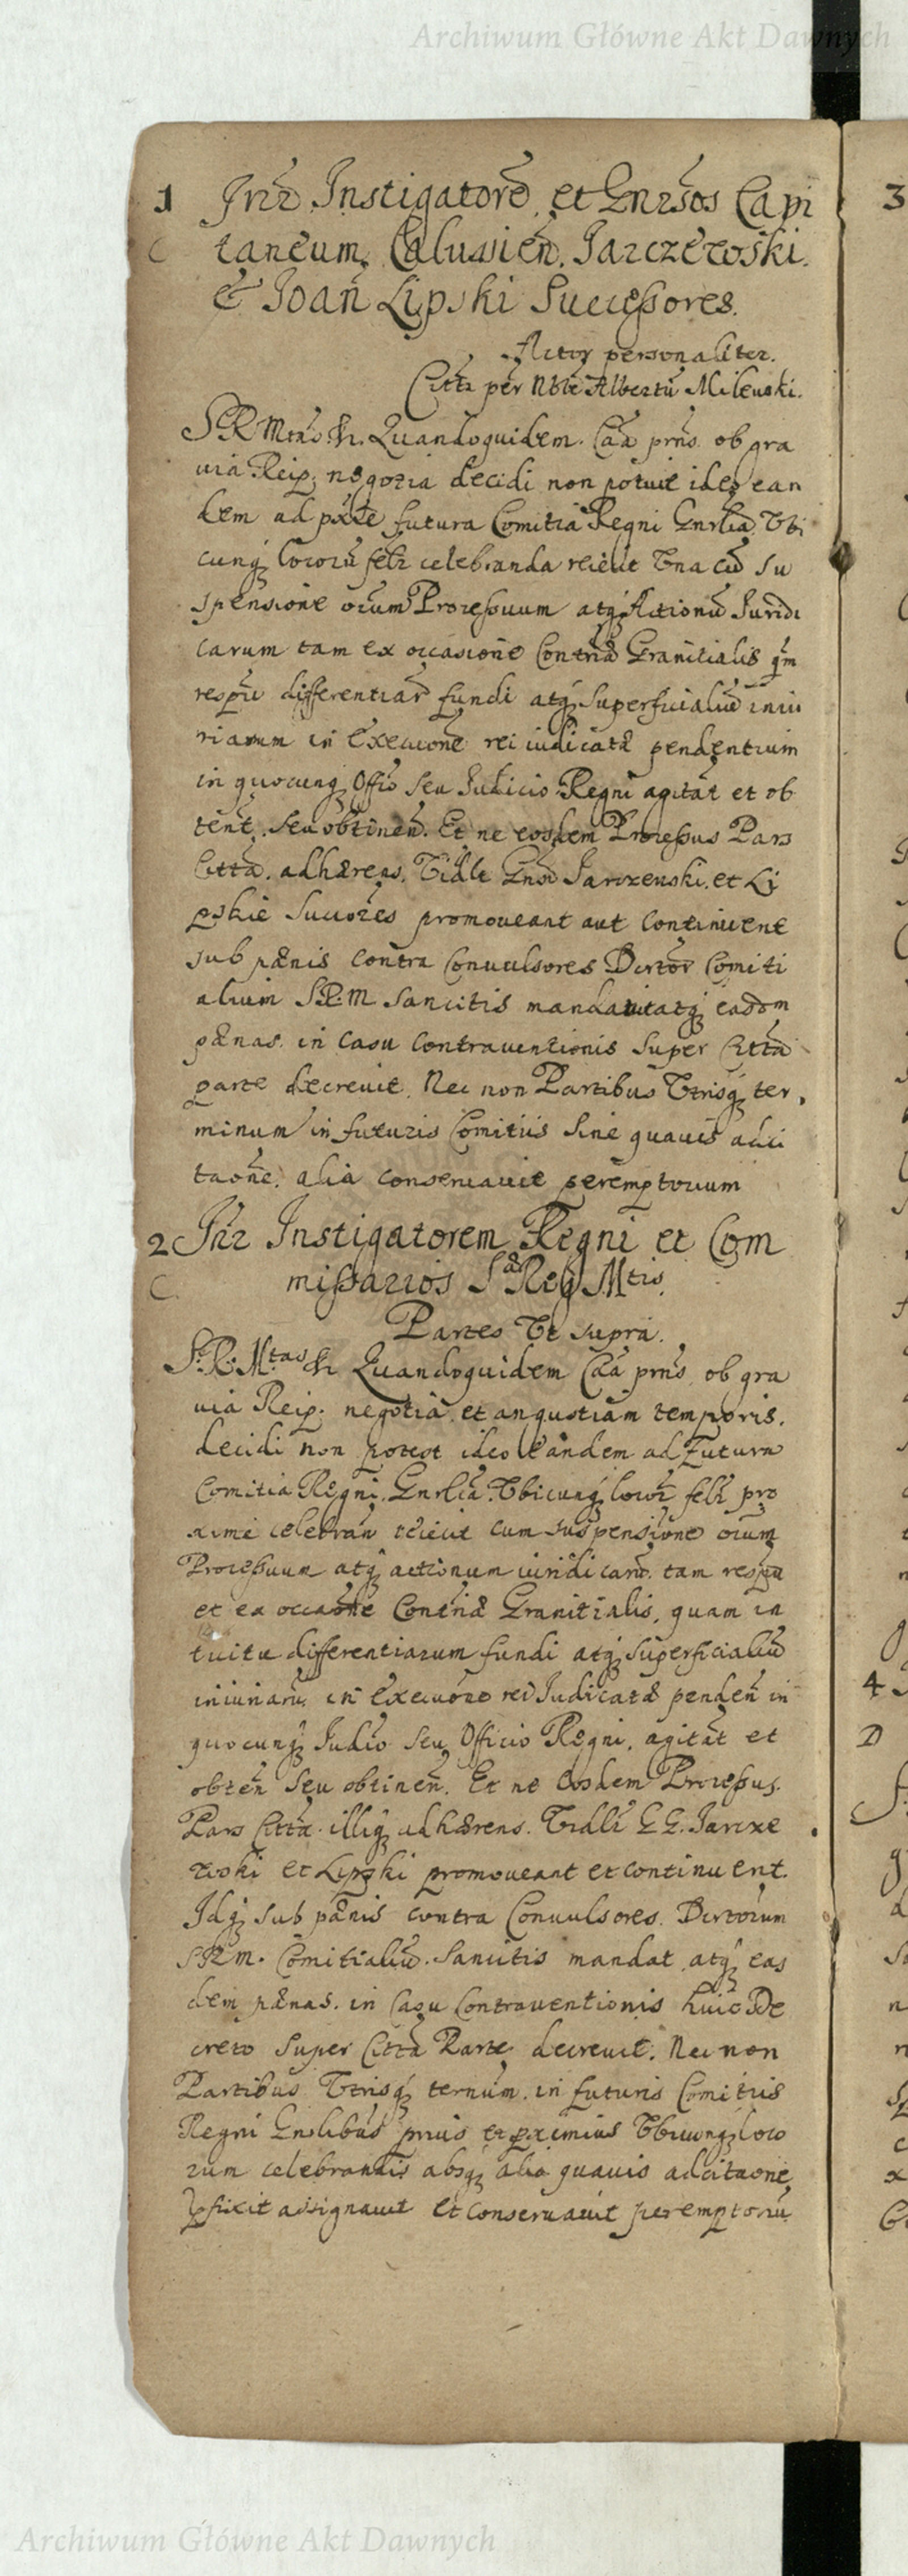 Archiwum Główne Akt Dawnych
1 Inter Instigatorē et Gnrsos Capi
taneum Calussien̄. Jarczewski.
& Joan̄ Lipski Successores.
Actor personaliter.
Citta per Nble Albertū Milewski.
S. R. Mtas &. Quandoquidem Caā prns ob gra
uia Reip. negotia decidi non potuit ideo ean
dem ad pxe futura Comitia Regni Gnrlia Vbi
cunq locorū felr celebranda reiecit Vna cū su
spensione oīum Processuum atq Actionū Juridi
carum tam ex occasione Contriæ Granitialis qm
respu differentiarū fundi atq superficialiū iniu
riarum in Execuone rei iudicatæ pendentium
in quocunq Offo seu Judicio Regni agitat et ob
tent. seu obtinen̄. Et ne eosdem Processus Pars
Citta. adhærens. Vidlt Gnsi Jarczewski. et Li
pskie Succores promoveant aut continuent
sub pænis contra Convulsores Dcrtor Comiti
alium S.R.M Sancitis mandavit atq easdem
pænas. in casu contraventionis super Citta
parte decrevit. Nec non Partibus Vtrisq ter
minum in futuris Comitiis sine quavis adci
taone. alia conservavit peremptorium
2 Inr Instigatorem Regni et Com
C. missarios Sæ Reg Mtis.
Partes Vt supra.
S. R. Mtas & Quandoquidem Caā prns ob gra
uia Reip. negotia et angustiam temporis.
decidi non potest ideo eandem ad futura
Comitia Regni. Gnrlia Vbicunq locor felr pro
xime celebran̄ reiecit cum suspensione oīum
Processuum atq actionum iuridicarū. tam respu
et ex occaone Contriæ Granitialis, quam in
tuitu differentiarum fundi atq superficialiū
iniuriarū. in Execuone rei Judicatæ penden̄ in
quocunq Judio seu Officio Regni. agitat et
obten̄ seu obtinen̄. Et ne eosdem Processus.
Pars Citta illiq adhærens. Vidlt GG. Jarcze
wski et Lipski promoveant et continuent.
Idq sub pænis contra Convulsores. Dcrtorum
SRM. Comitialiū. Sancitis mandat atq eas
dem pænas. in Casu Contraventionis huic De
creto super Citta Parte decrevit. Nec non
Partibus Vtrisq ternum. in futuris Comitiis
Regni Gnrlibus prius et pximius Vbicunq loco
rum celebrandis absq alia quavis adcitaone
pfixit assignavit et conservavit peremptoriū
3
4
D
Archiwum Główne Akt Dawnych